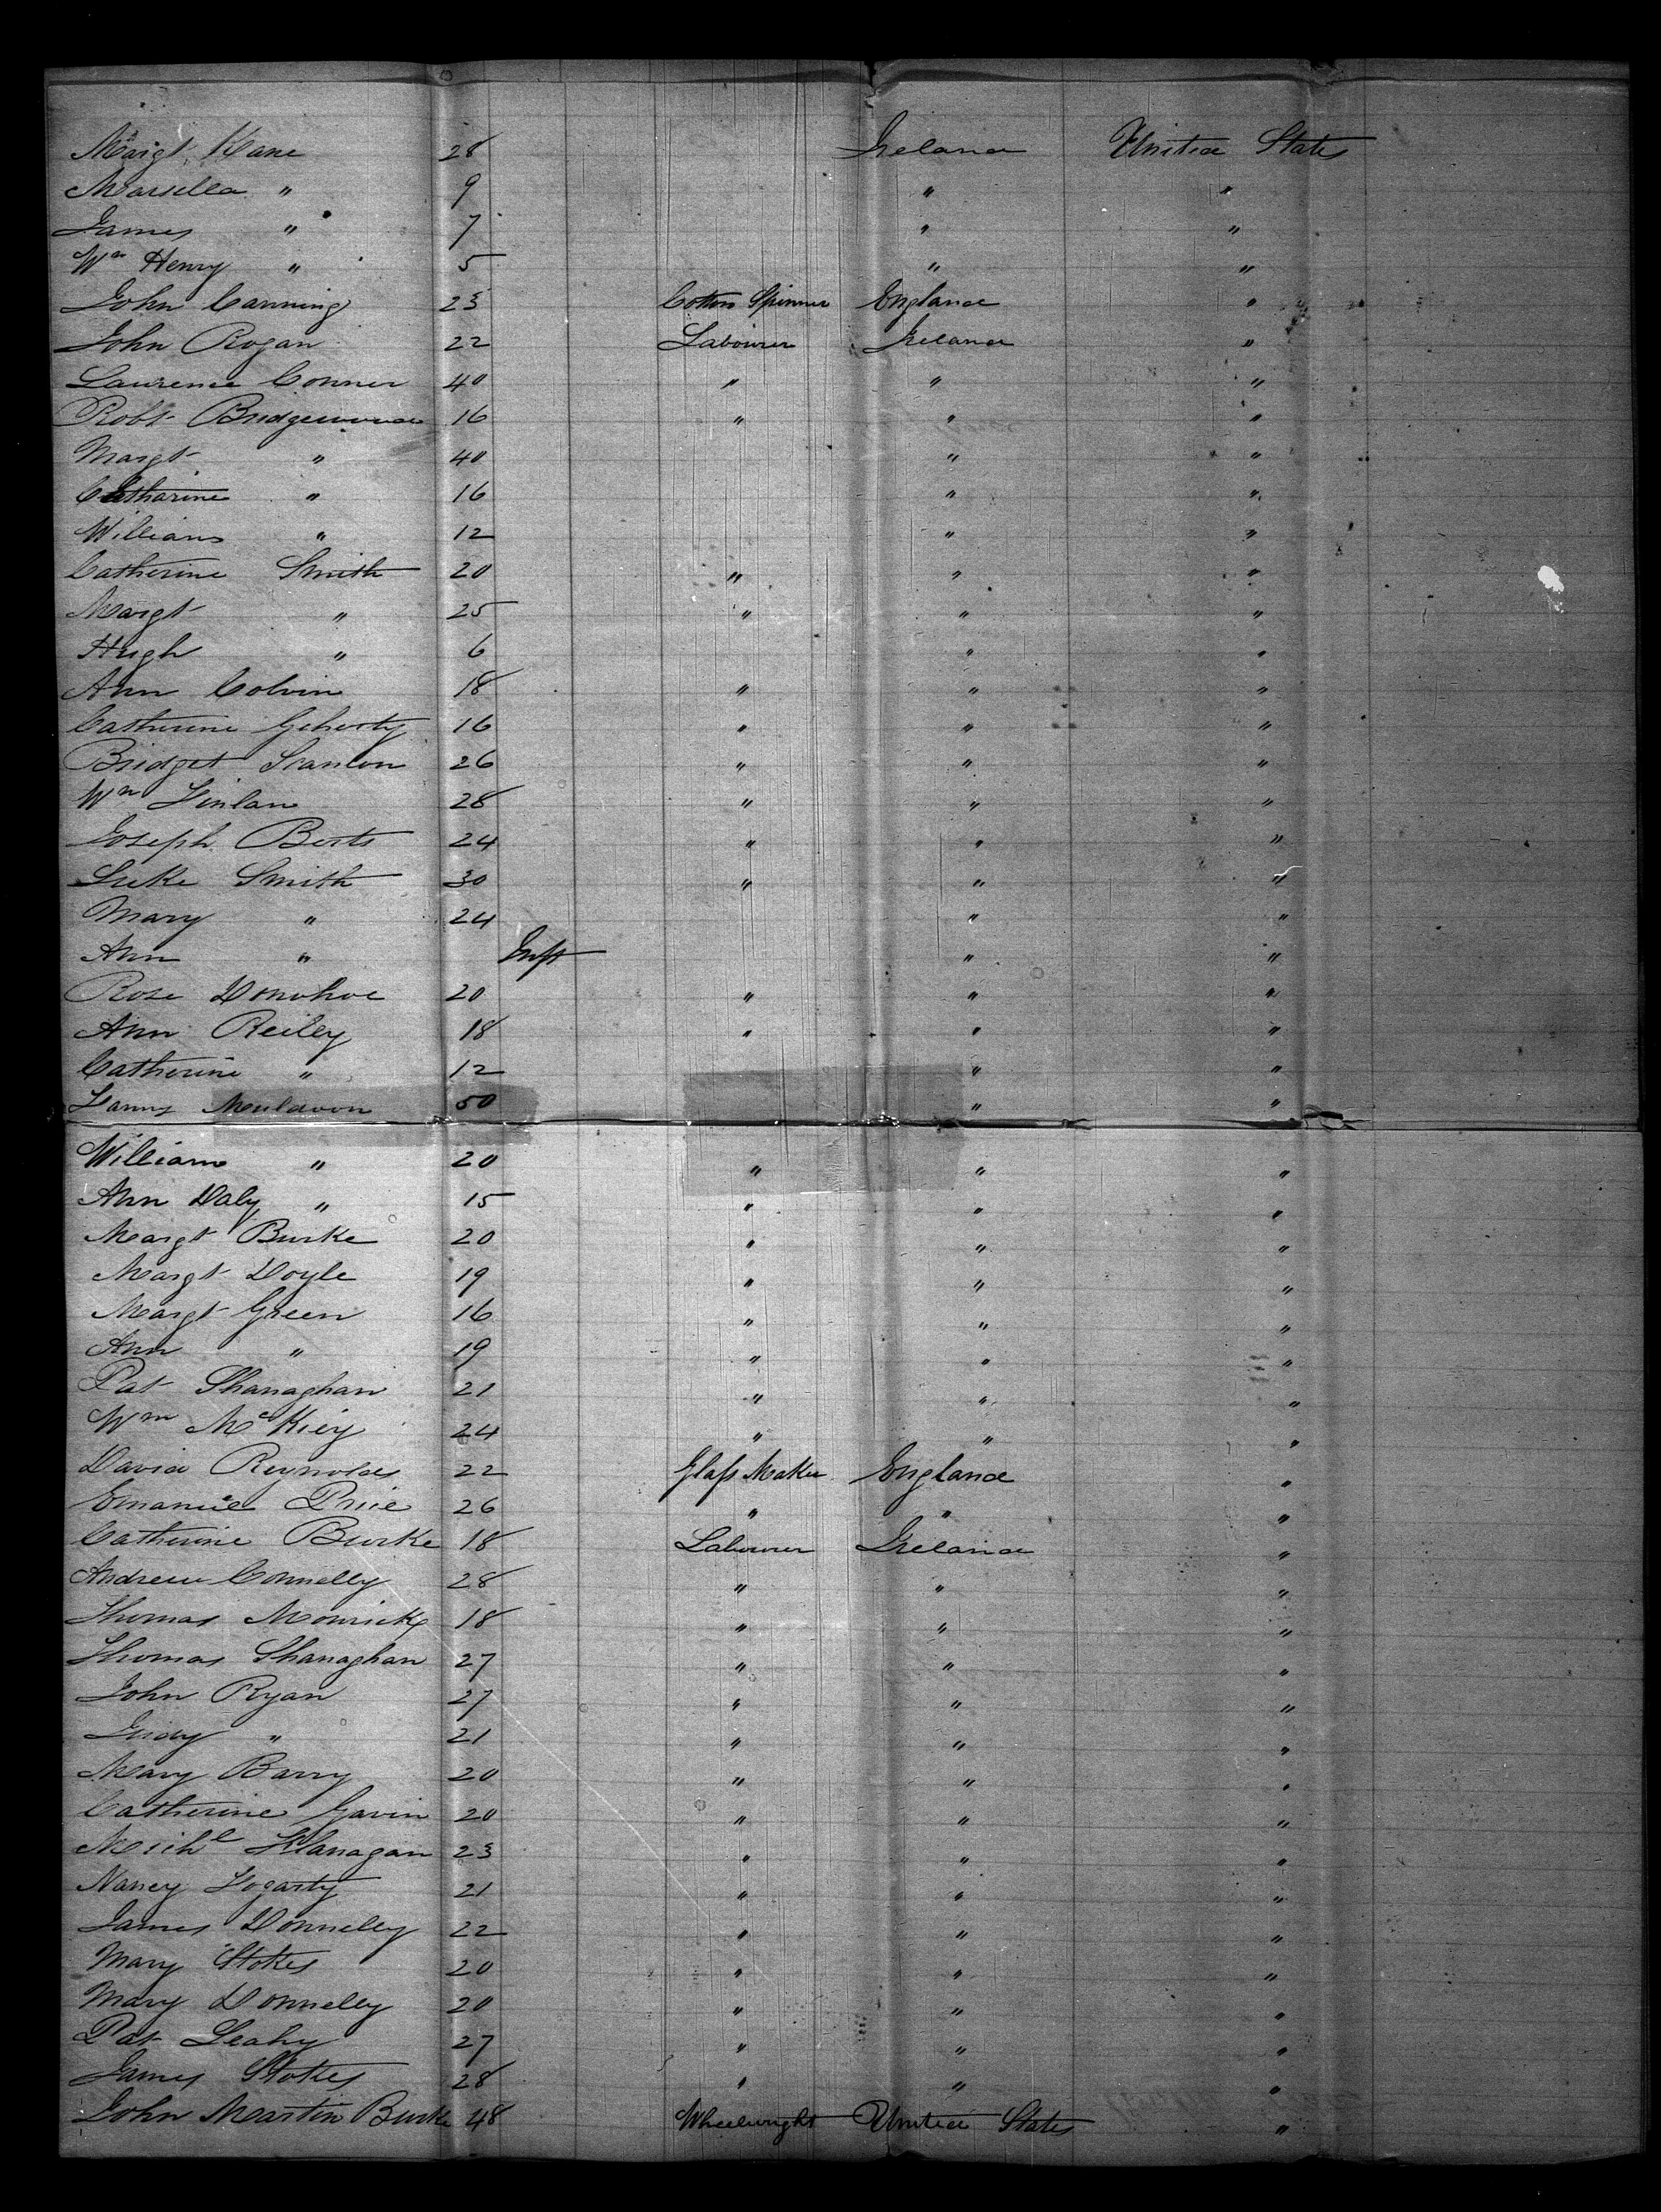 Margt Kane 28 Ireland United States
Marsella " 9 " "
James " 7 " "
Wm Henry " 5 " "
John Canning 23 Cotton Spinner England "
John Rogan 22 Labourer Ireland "
Laurence Conner 40 " " "
Robt Bridgewood 16 " " "
Margt " 40 " "
Catharine " 16 " "
William " 12 " "
Catherine Smith 20 " " "
Margt " 25 " " "
Hugh " 6 " "
Ann Colvin 18 " " "
Catherine Geherty 16 " " "
Bridget Scanlon 26 " " "
Wm Finlan 28 " " "
Joseph Berts 24 " " "
Luke Smith 30 " " "
Mary " 24 " "
Ann " Inft " "
Rose Donohoe 20 " " "
Ann Reiley 18 " " "
Catherine " 12 " "
Muldoon 50 " "
William " 20 " " "
Ann Daly " 15 " " "
Margt Burke 20 " " "
Margt Doyle 19 " " "
Margt Green 16 " " "
Ann " 19 " " "
Pat Shanaghan 21 " " "
Wm McKiey 24 " " "
David Reynolds 22 Glass Maker England "
Emanuel Price 26 " " "
Catherine Burke 18 Labourer Ireland "
Andrew Connelly 28 " " "
Thomas 18 " " "
Thomas Shanaghan 27 " " "
John Ryan 27 " " "
Judy " 21 " " "
Mary Barry 20 " " "
Catherine Gavin 20 " " "
Michl Flanagan 23 " " "
Nancy Fogarty 21 " " "
James Donnelly 22 " " "
Mary Stokes 20 " " "
Mary Donnelly 20 " " "
Pat Leahy 27 " " "
James Stokes 28 " " "
John Martin Burke 48 Wheelwright United States "